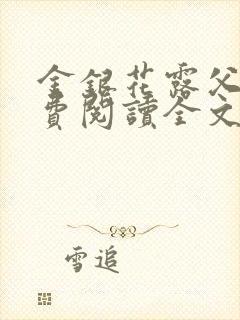 金銀花露父
費閱讀全文
雪追